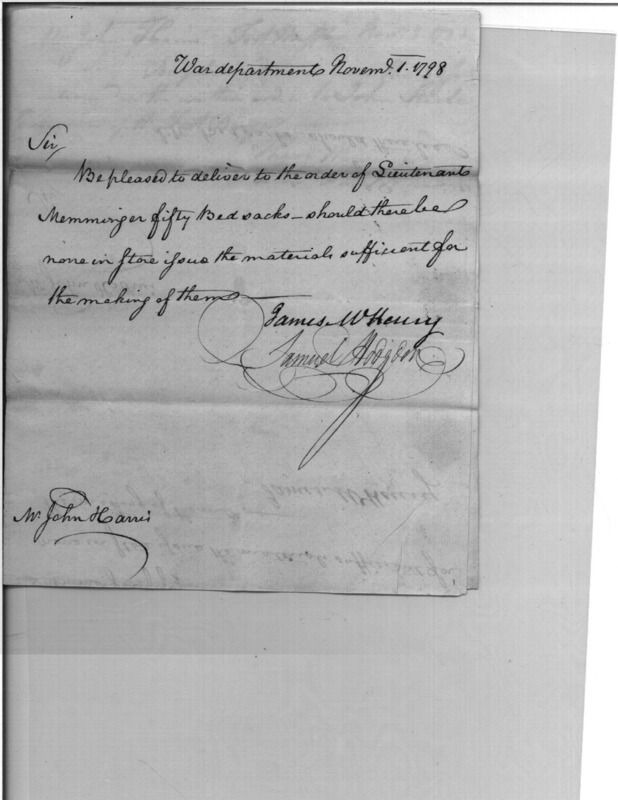 War department Novem.r 1. 1798
Sir
Be pleased to deliver to the order of Lieutenant
Memminger fifty Bed sacks - should there be
none in store issue the materials sufficient for
the making of them
James McHenry
Samuel Hodgdon
Mr John Harris